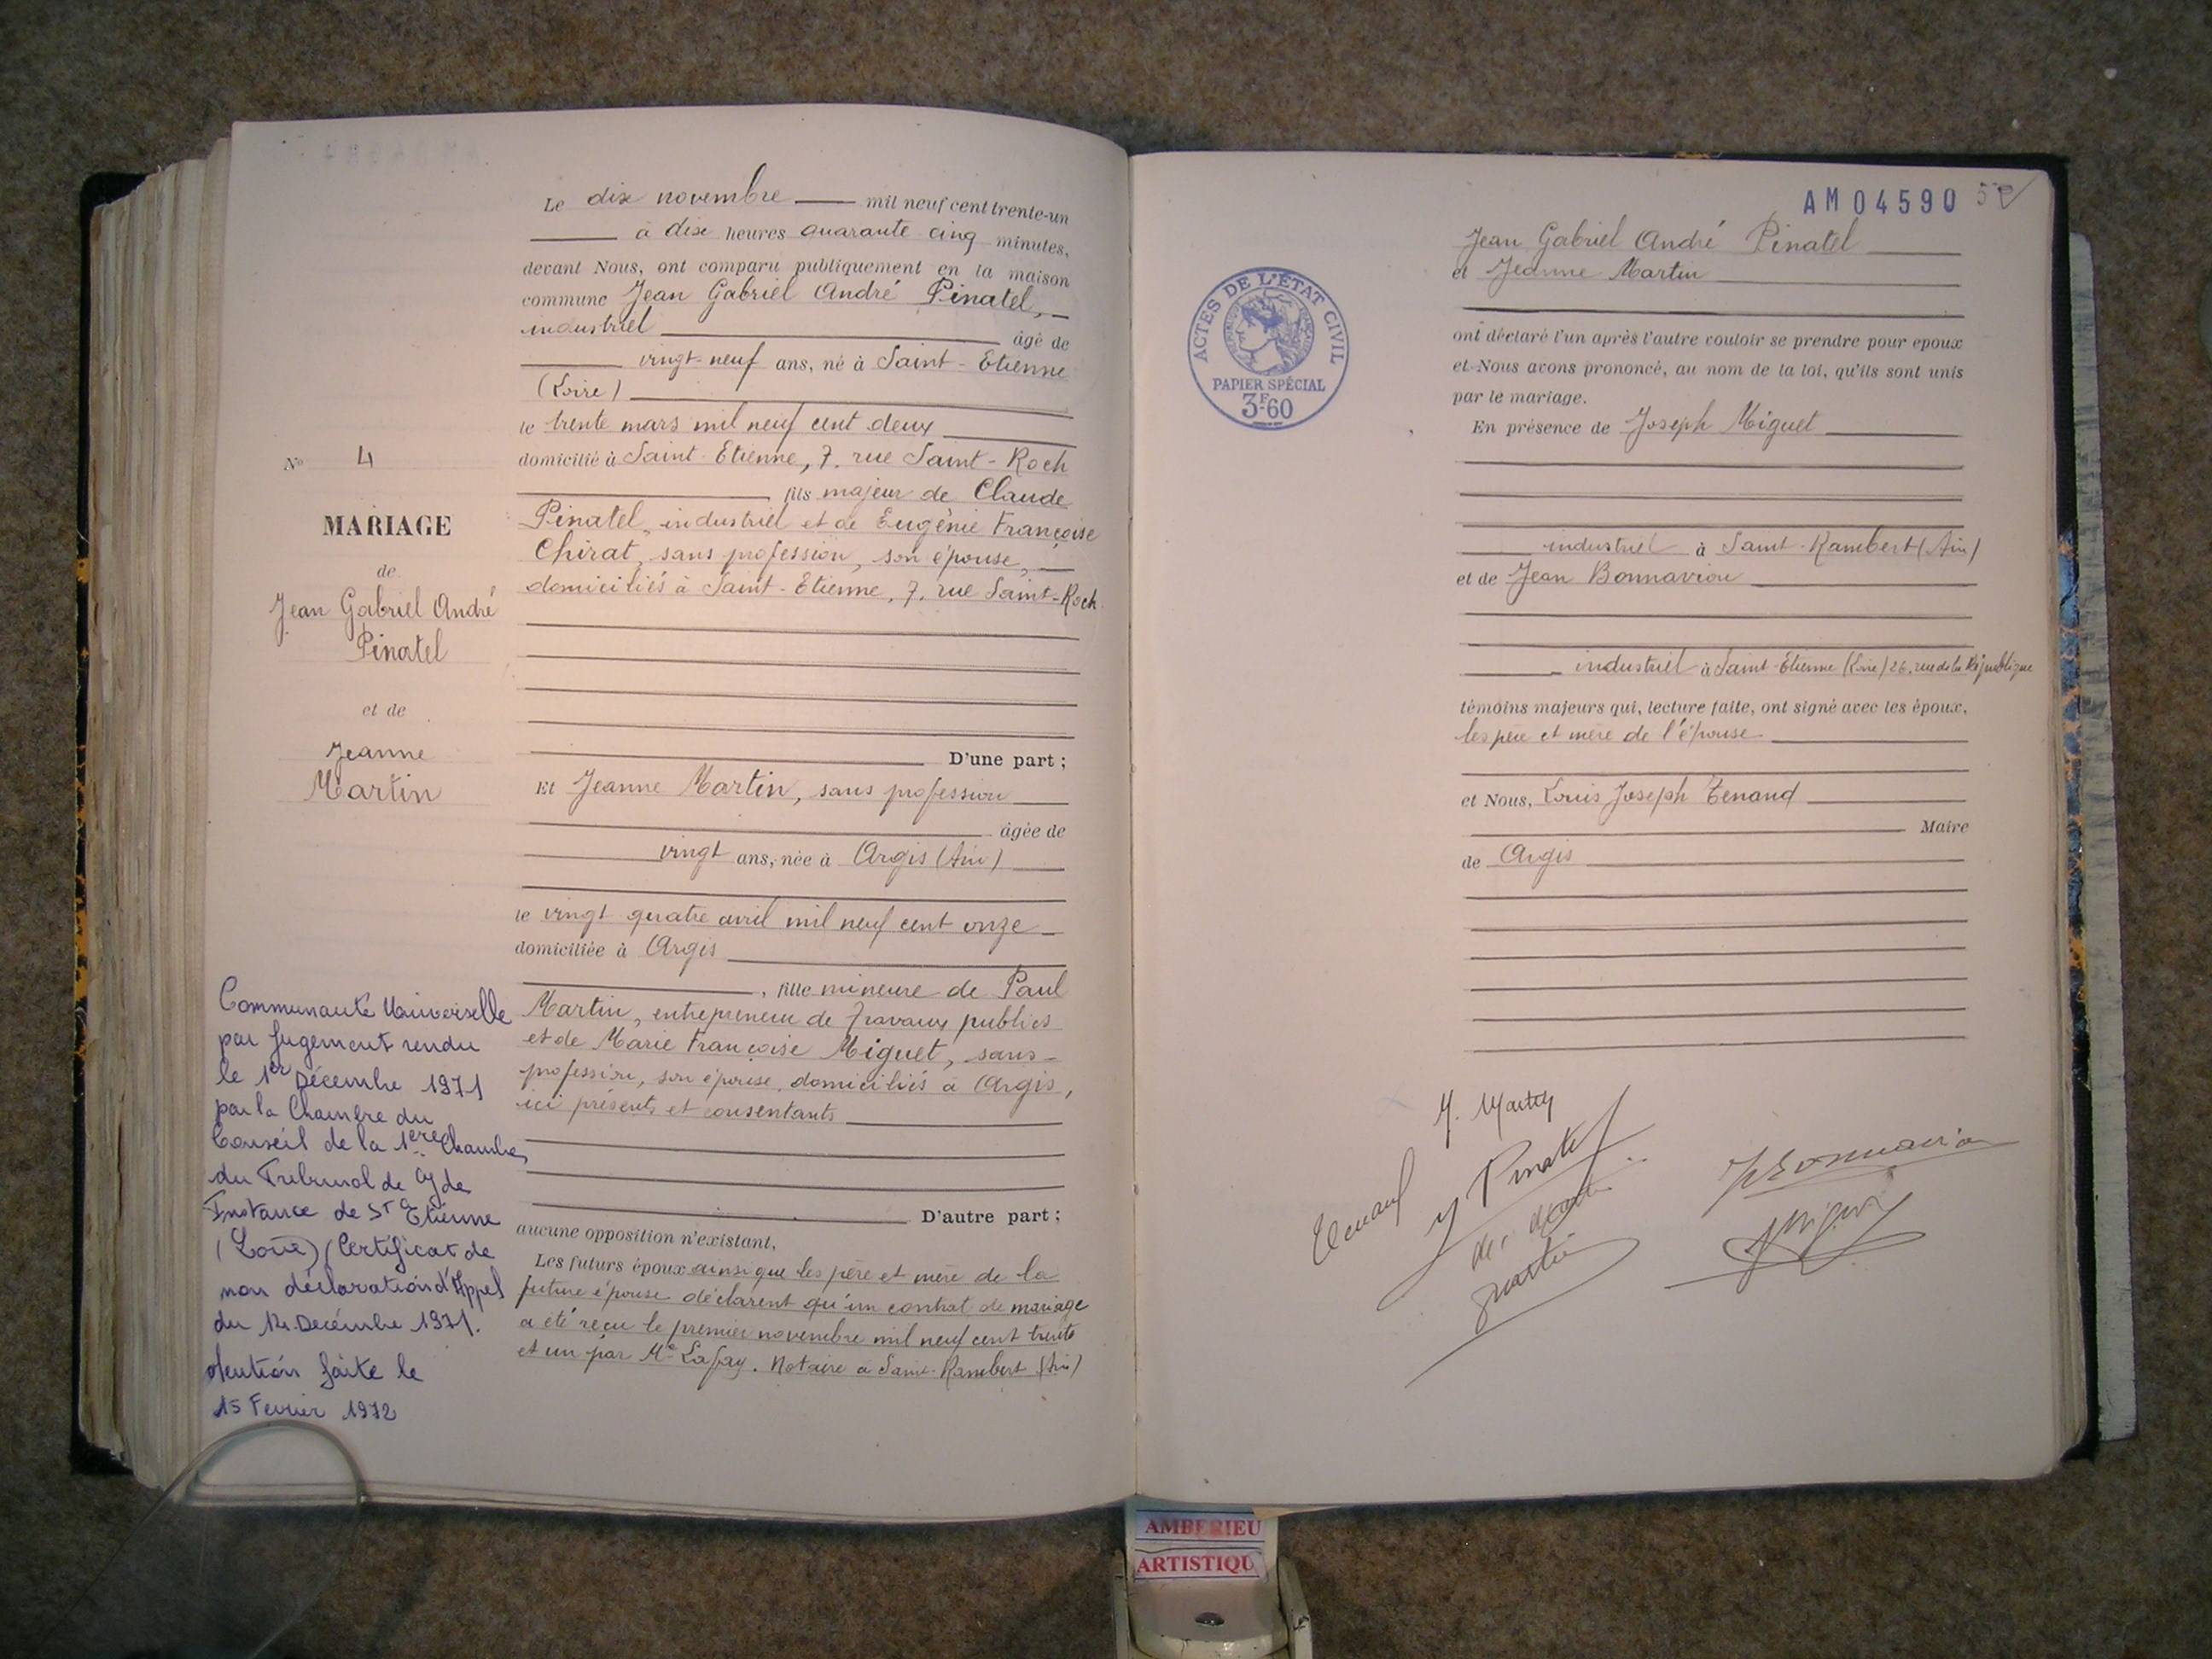 Le dix novembre mil neuf cent trente-un
à dix heures quarante cinq minutes,
devant Nous, ont comparu publiquement en la maison
commune Jean Gabriel André Pinatel,
industriel âgé de
vingt neuf ans, né à Saint-Etienne
(Loire)
le trente mars mil neuf cent deux
domicilié à Saint-Etienne, 7. rue Saint-Roch
, fils majeur de Claude
Pinatel, industriel et de Eugénie Françoise
Chirat, sans profession, son épouse,
domiciliés à Saint-Etienne, 7. rue Saint-Roch
D'une part ;
Et Jeanne Martin, sans profession
âgée de
vingt ans, née à Argis (Ain)
le vingt quatre avril mil neuf cent onze
domiciliée à Argis
, fille mineure de Paul
Martin, entrepreneur de travaux publics
et de Marie Françoise Miguet, sans
profession, son épouse, domiciliés à Argis,
ici présents et consentants
D'autre part ;
aucune opposition n'existant,
Les futurs époux ainsi que les père et mère de la
future épouse déclarent qu'un contrat de mariage
a été reçu le premier novembre mil neuf cent trente
et un par Me Lafay. Notaire à Saint-Rambert (Ain)
No 4
MARIAGE
de
Jean Gabriel André
Pinatel
et de
Jeanne
Martin
Communauté Universelle
par Jugement rendu
le 1er Décembre 1971
par la Chambre du
Conseil de la 1ère Chambre
du Tribunal de Gde
Instance de St Etienne
(Loire) (Certificat de
non déclaration d'Appel
du 14 Décembre 1971.
Mention faite le
15 Fevrier 1972
AM04590
ACTES DE L'ÉTAT CIVIL
RÉPUBLIQUE FRANÇAISE
PAPIER SPÉCIAL
3F60
Jean Gabriel André Pinatel
et Jeanne Martin
ont déclaré l'un après l'autre vouloir se prendre pour epoux
et Nous avons prononcé, au nom de la loi, qu'ils sont unis
par le mariage.
En présence de Joseph Miguet
industriel à Saint-Rambert (Ain)
et de Jean Bonnaviou
industriel à Saint-Etienne (Loire) 26. rue de la République
témoins majeurs qui, lecture faite, ont signé avec les époux,
les père et mère de l'épouse
et Nous, Louis Joseph Tenand
Maire
de Argis
Tenand
Pinatel
AMBERIEU
ARTISTIQU